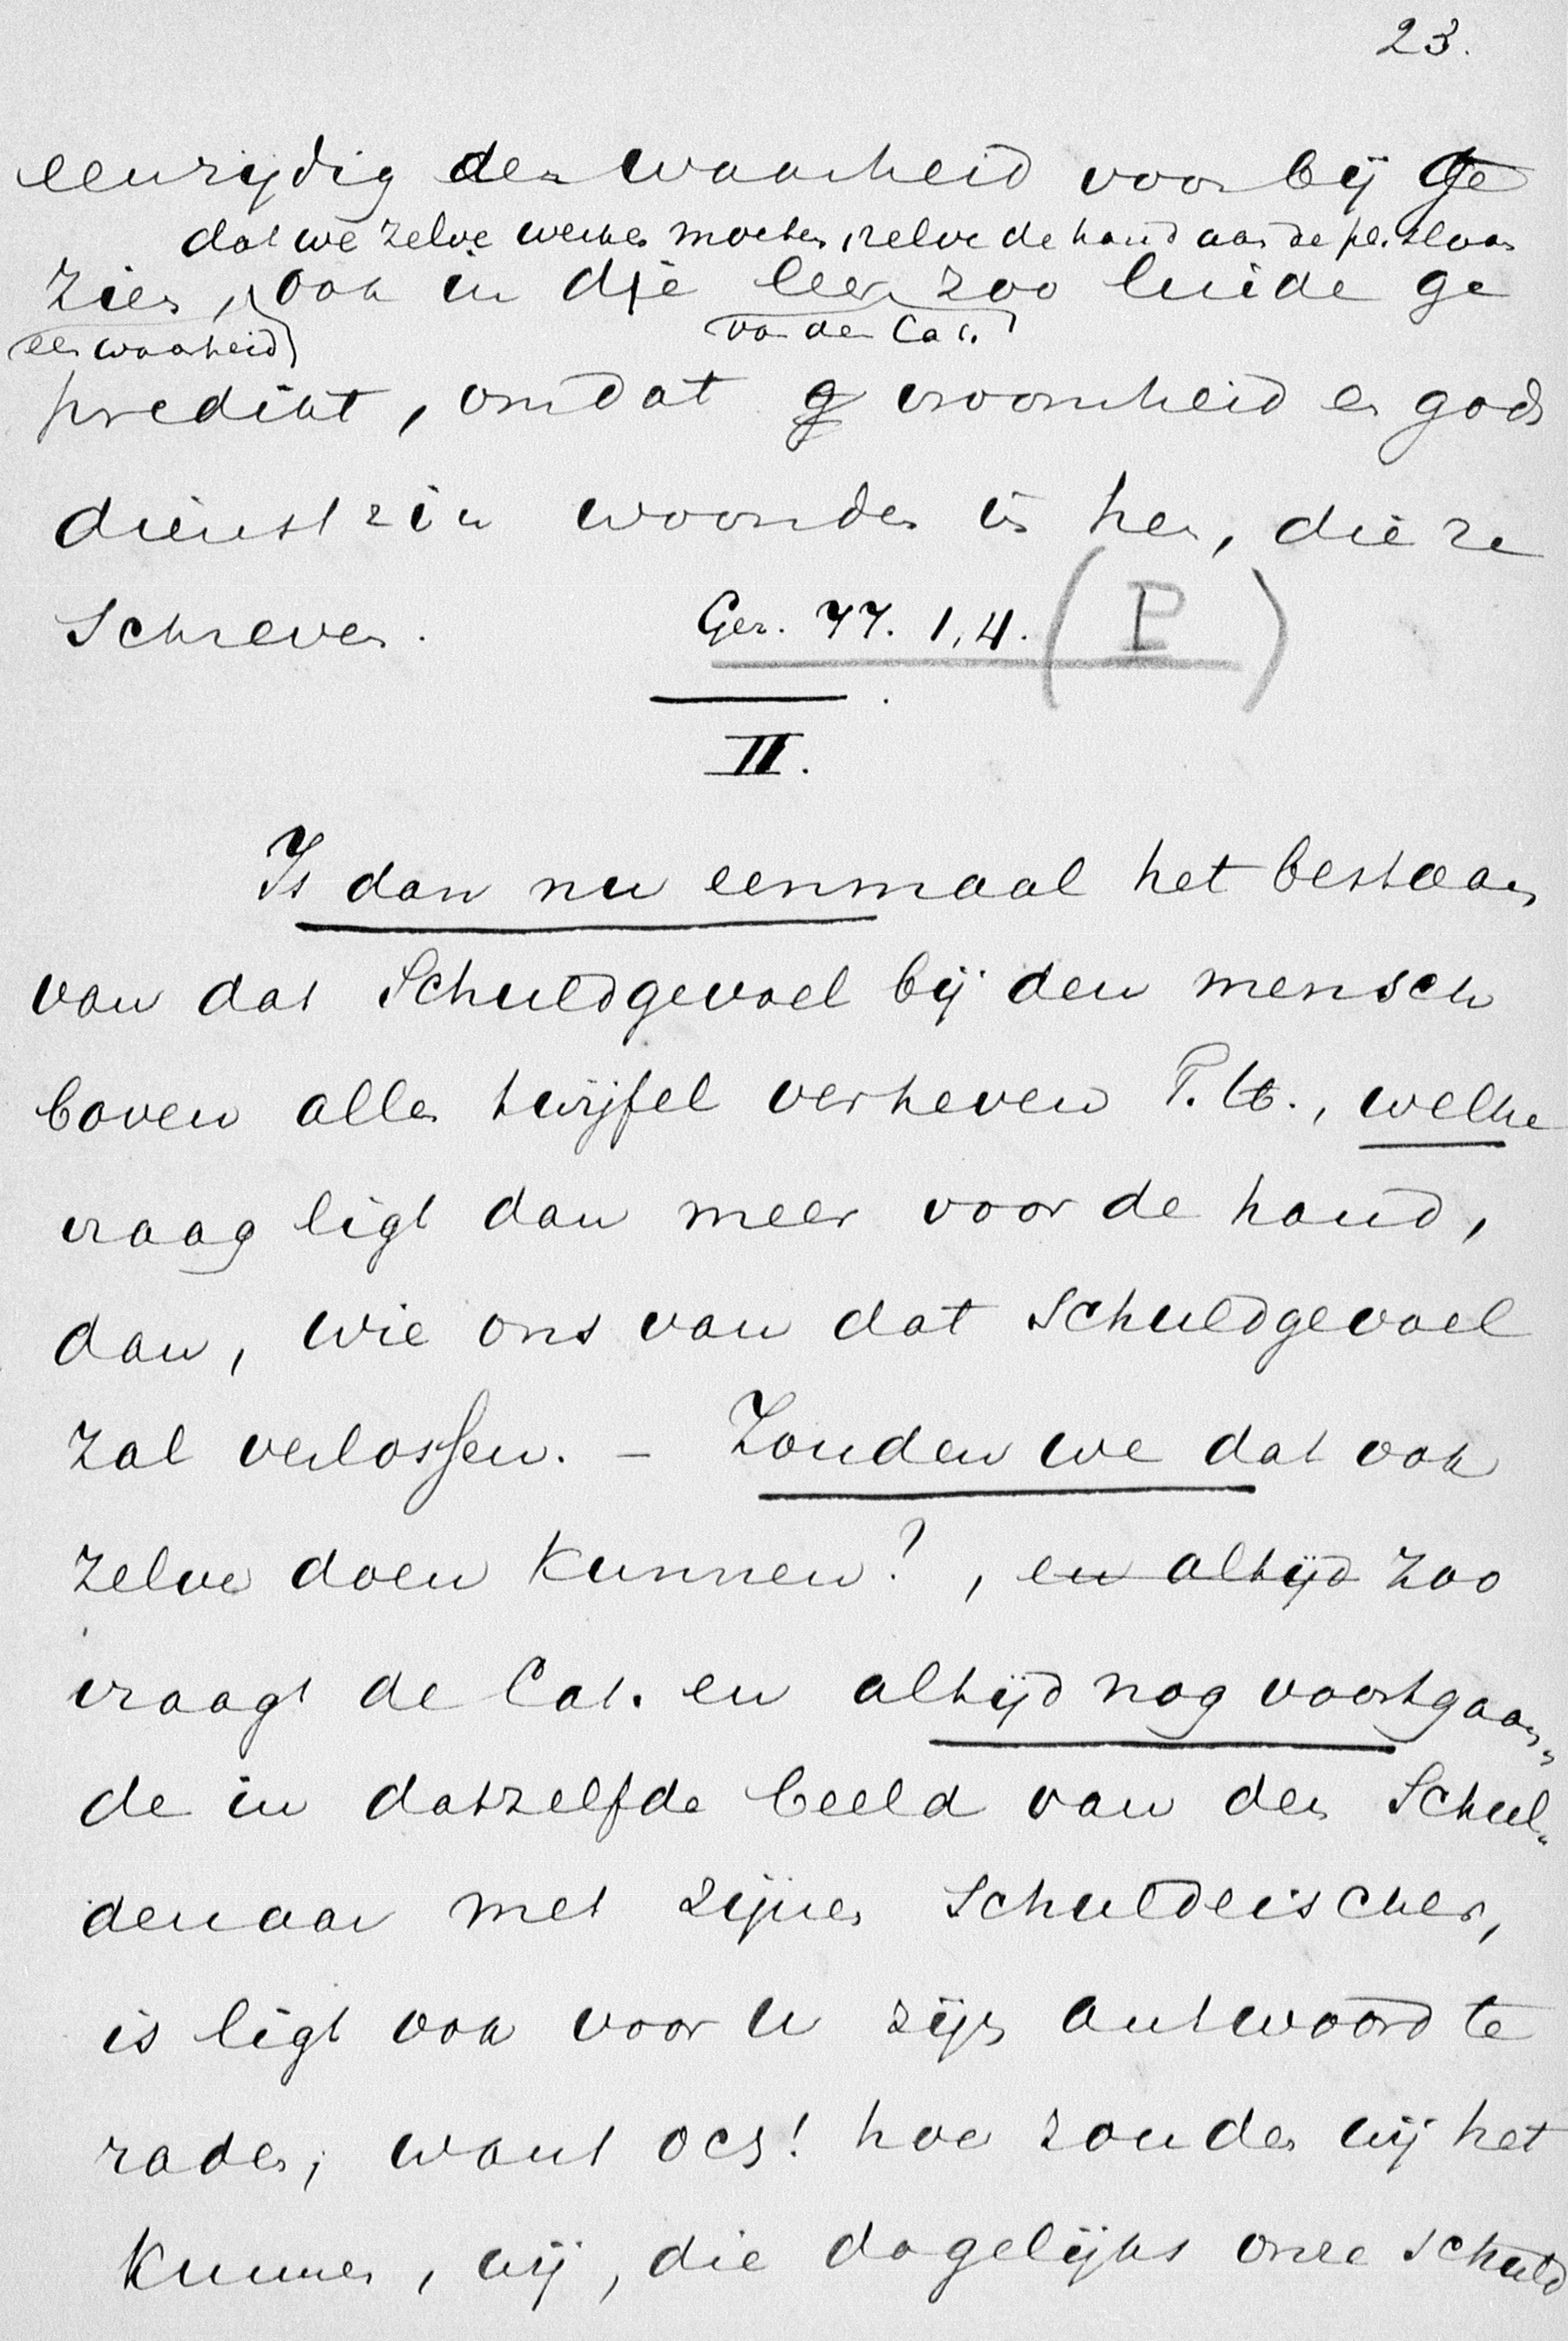 23.
eenzijdig der waarheid voorbij te
dat we zelve werken moeten, zelve de hand aan de ploeg slaan
zien, ook in die leer zoo luide ge
een waarheid
van den Cat.
predikt, omdat g vroomheid en gods
dienstzin woonden in hen, die ze
schreven.
Gez. 77. 1,4. (P)
II.
Is dan nu eenmaal het bestaan
van dat Schuldgevoel bij den mensch
boven allen twijfel verheven T. G., welke
vraag ligt dan meer voor de hand,
dan, wie ons van dat schuldgevoel
zal verlossen. – Zouden we dat ook
zelve doen kunnen?, en altijd zoo
vraagt de Cat. en altijd nog voortgaan„
de in datzelfde beeld van den Schul„
denaar met zijnen Schuldeischer,
is ligt ook voor U zijn antwoord te
raden; want och! hoe zouden wij het
kunnen, wij, die dagelijks onze schuld